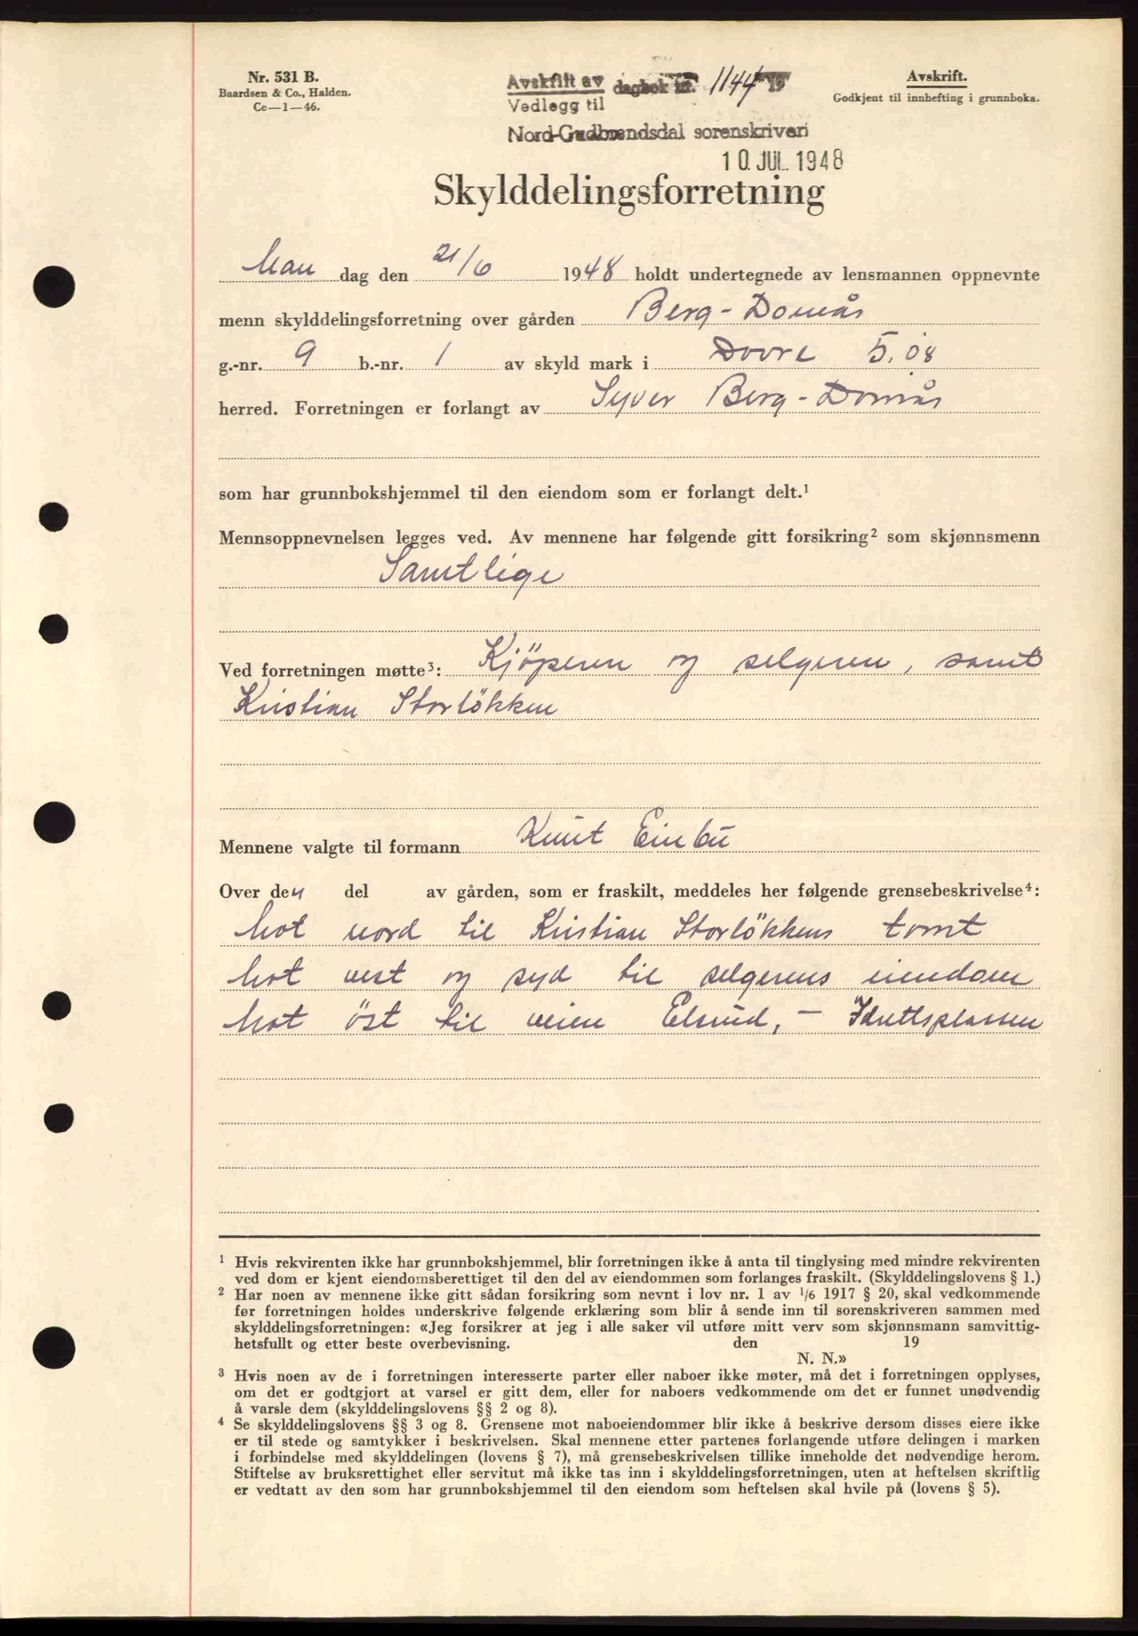 Nr. 531 B.
Baardsen & Co., Halden.
Ce—1—46.
Avskrift av dagbok nr. 1144 19
Vedlegg til
Nord-Gudbrandsdal sorenskriveri
10. JUL. 1948
Avskrift.
Godkjent til innhefting i grunnboka.
Skylddelingsforretning
Man dag den 21/6 1948 holdt undertegnede av lensmannen oppnevnte
menn skylddelingsforretning over gården Berg-Domås
g.-nr. 9 b.-nr. 1 av skyld mark i Dovre 5,08
herred. Forretningen er forlangt av Syver Berg-Domås
som har grunnbokshjemmel til den eiendom som er forlangt delt.¹
Mennsoppnevnelsen legges ved. Av mennene har følgende gitt forsikring² som skjønnsmenn
Samtlige
Ved forretningen møtte³: Kjöperen og selgeren, samt
Kristian Storlökken
Mennene valgte til formann Knut Einbu
Over den del av gården, som er fraskilt, meddeles her følgende grensebeskrivelse⁴:
Mot nord til Kristian Storlökkens tomt
Mot vest og syd til selgerens eiendom
Mot öst til veien Elsrud, — Idrettsplassen
¹ Hvis rekvirenten ikke har grunnbokshjemmel, blir forretningen ikke å anta til tinglysing med mindre rekvirenten
ved dom er kjent eiendomsberettiget til den del av eiendommen som forlanges fraskilt. (Skylddelingslovens § 1.)
² Har noen av mennene ikke gitt sådan forsikring som nevnt i lov nr. 1 av 1/6 1917 § 20, skal vedkommende
før forretningen holdes underskrive følgende erklæring som blir å sende inn til sorenskriveren sammen med
skylddelingsforretningen: «Jeg forsikrer at jeg i alle saker vil utføre mitt verv som skjønnsmann samvittig-
hetsfullt og etter beste overbevisning. den 19
N. N.»
³ Hvis noen av de i forretningen interesserte parter eller naboer ikke møter, må det i forretningen opplyses,
om det er godtgjort at varsel er gitt dem, eller for naboers vedkommende om det er funnet unødvendig
å varsle dem (skylddelingslovens §§ 2 og 8).
⁴ Se skylddelingslovens §§ 3 og 8. Grensene mot naboeiendommer blir ikke å beskrive dersom disses eiere ikke
er til stede og samtykker i beskrivelsen. Skal mennene etter partenes forlangende utføre delingen i marken
i forbindelse med skylddelingen (lovens § 7), må grensebeskrivelsen tillike inneholde det nødvendige herom.
Stiftelse av bruksrettighet eller servitut må ikke tas inn i skylddelingsforretningen, uten at heftelsen skriftlig
er vedtatt av den som har grunnbokshjemmel til den eiendom som heftelsen skal hvile på (lovens § 5).